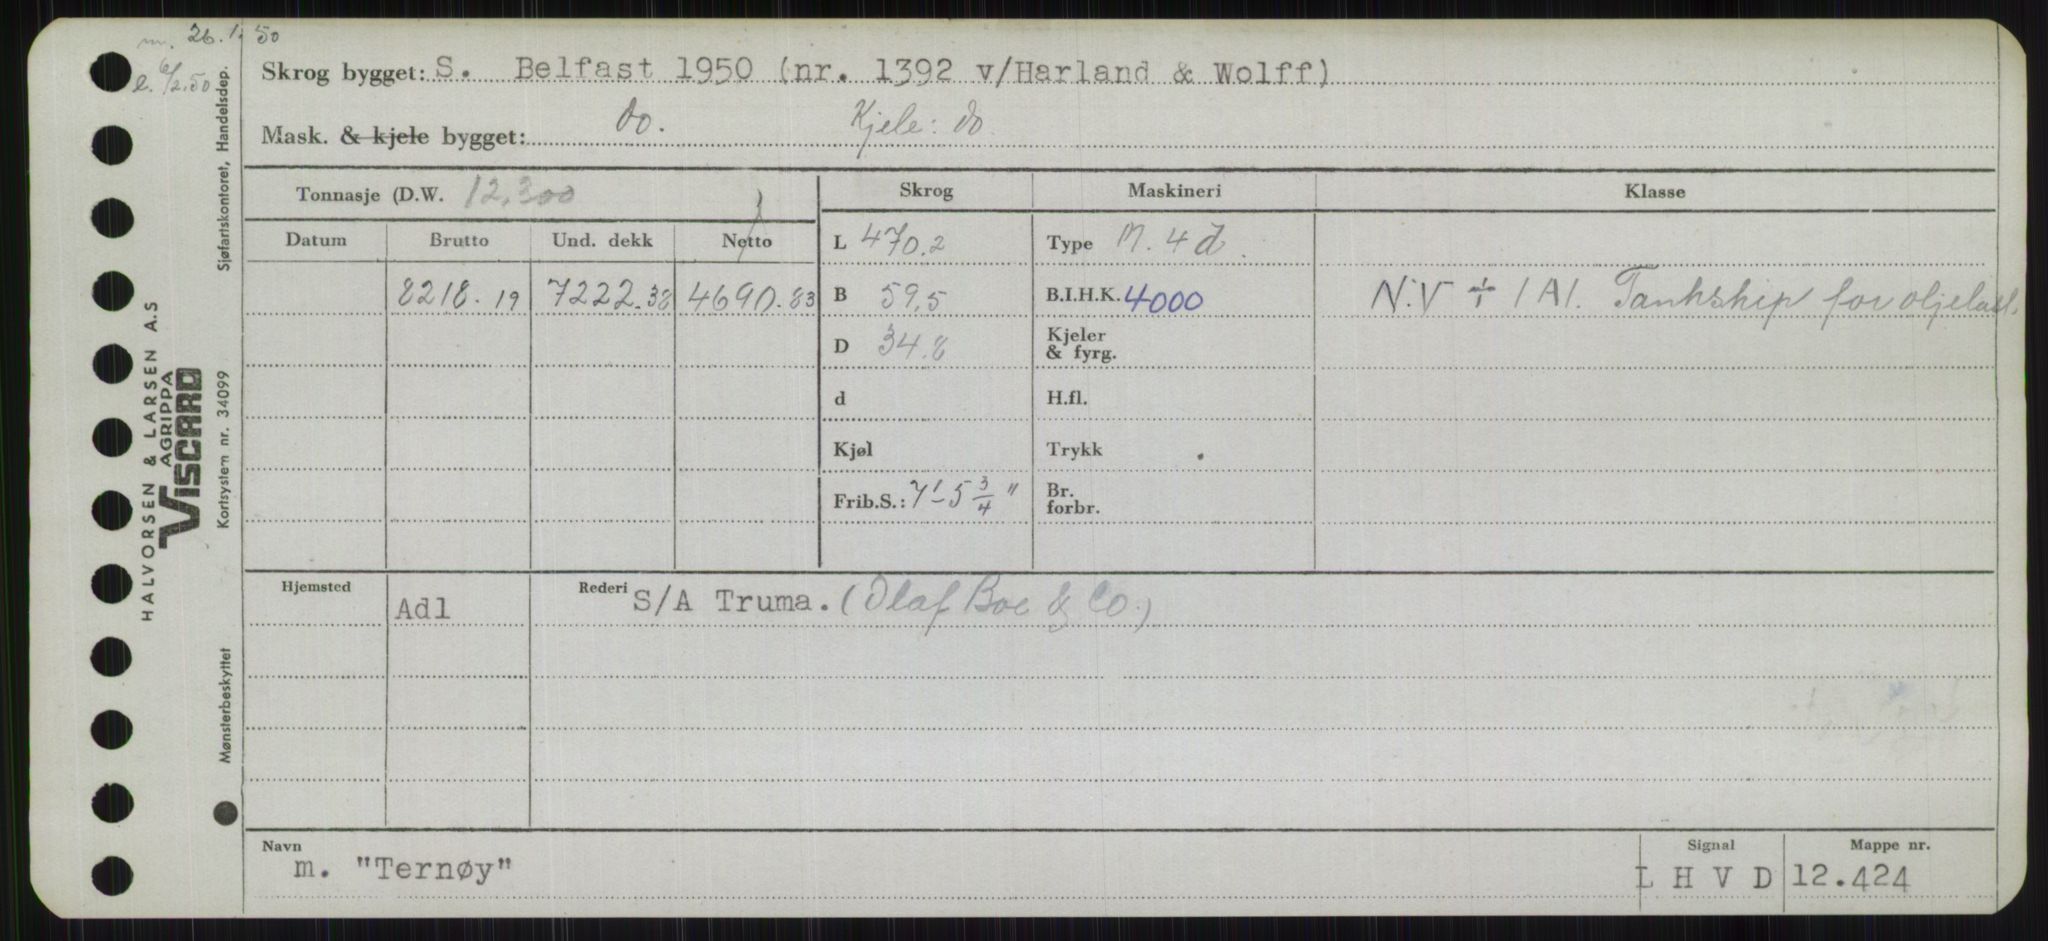 m. 26.1.50
e. 6/2.50
Skrog bygget: S. Belfast 1950 (nr. 1392 v/Harland & Wolff)
Mask. & kjele bygget: do. Kjele: do
Tonnasje (D.W. 12,300
Skrog Maskineri Klasse
Datum Brutto Und. dekk Netto
L 470.2 Type M. 4 d.
8218.19 7222.38 4690.83
B 59,5 B.I.H.K. 4000 N.V ÷ 1A1. Tankship for oljelast.
D 34.8 Kjeler
& fyrg.
d H.fl.
Kjøl Trykk
Frib.S.: 7'-5 3/4" Br.
forbr.
Hjemsted Adl Rederi S/A Truma. (Olaf Boe & Co.)
Navn Signal Mappe nr.
m. "Ternøy" L H V D 12.424
HALVORSEN & LARSEN A.S
AGRIPPA
VISCARD
Mønsterbeskyttet Kortsystem nr. 34099 Sjøfartskontoret, Handelsdep.